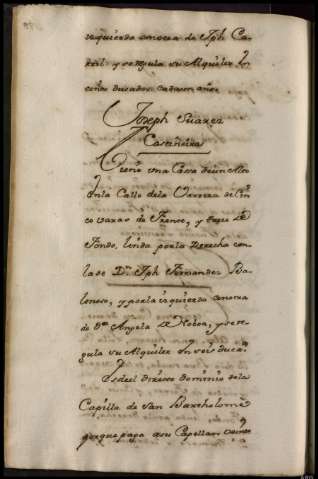 izquierda conosca de Jph Ca
tral: y se regula su Alquiler In
cinco ducados cada un año
Joseph Suarez
Castiñeira
Tiene una Cassa de un Alto
en la Calle dela Carrera de Cin
co varas de Frente, y Onze de
Fondo, linda por la Derecha con
la de Dn. Jph Fernandez Ba
lonoso, y por la izquierda conosca
de Da. Angela de Noboa, y se re
gula su Alquiler en seis ducas.
Es del Directo Dominio dela
Capilla de San Bartholomè
porque paga a su Capellan